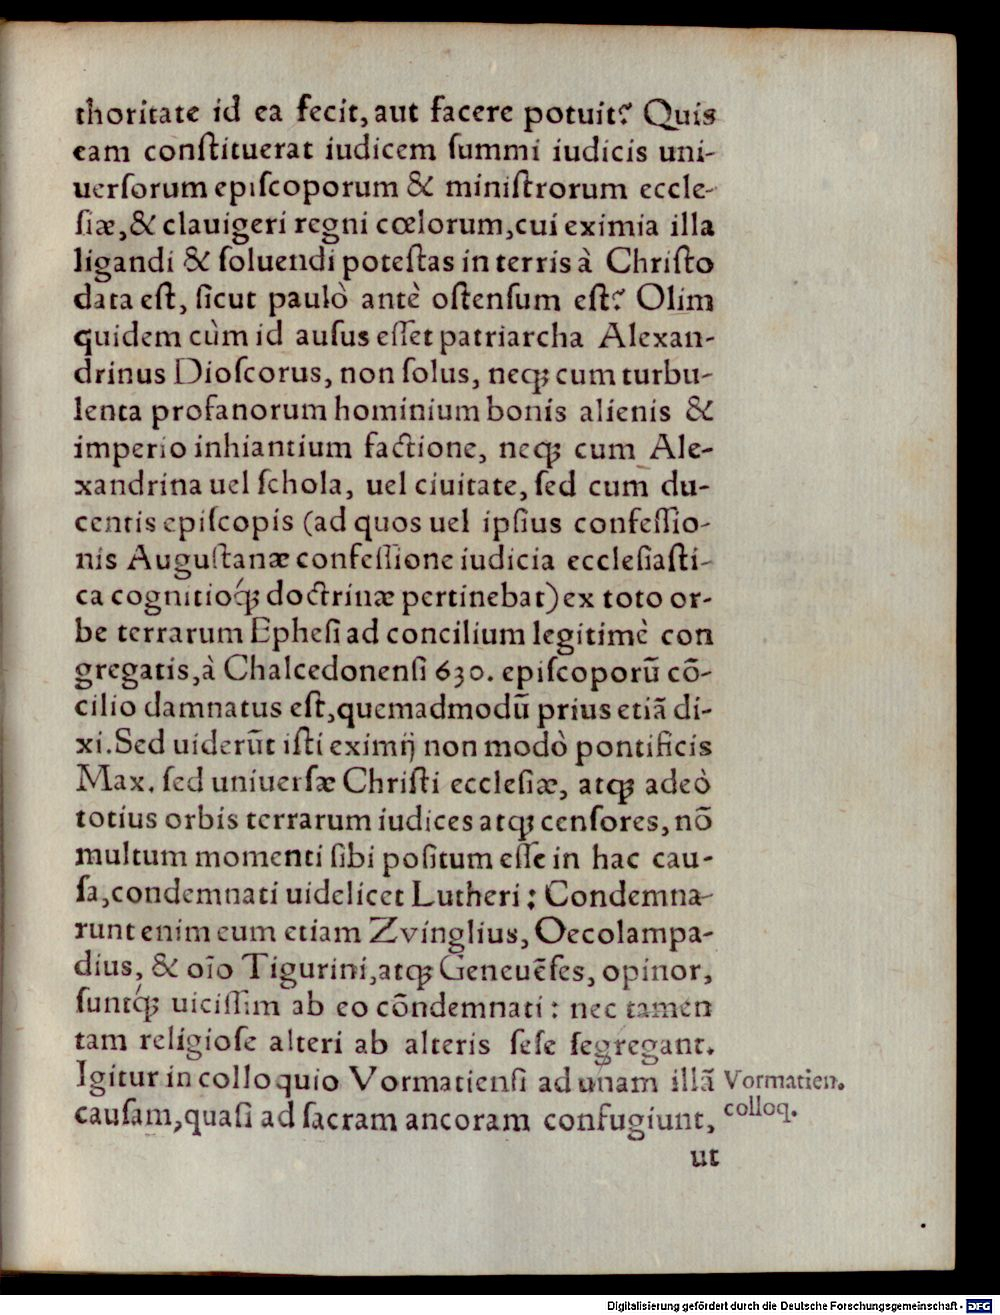 thoritate id ea fecit, aut facere potuit? Quis
eam conſtituerat iudicem ſummi iudicis uni-
uerſorum epiſcoporum & miniſtrorum eccle-
ſiæ, & clauigeri regni cœlorum, cui eximia illa
ligandi & ſoluendi poteſtas in terris à Chriſto
data eſt, ſicut paulò antè oſtenſum eſt? Olim
quidem cùm id auſus eſſet patriarcha Alexan-
drinus Dioſcorus, non ſolus, neqꝫ cum turbu-
lenta profanorum hominium bonis alienis &
imperio inhiantium factione, neqꝫ cum Ale-
xandrina uel ſchola, uel ciuitate, ſed cum du-
centis epiſcopis (ad quos uel ipſius confeſſio-
nis Auguſtanæ confeſſione iudicia eccleſiaſti-
ca cognitioq́ꝫ doctrinæ pertinebat) ex toto or-
be terrarum Epheſi ad concilium legitimè con
gregatis, à Chalcedonenſi 630. epiſcoporũ cõ-
cilio damnatus eſt, quemadmodũ prius etiã di-
xi. Sed uiderũt iſti eximij non modò pontificis
Max. ſed uniuerſæ Chriſti eccleſiæ, atqꝫ adeò
totius orbis terrarum iudices atqꝫ cenſores, nõ
multum momenti ſibi poſitum eſſe in hac cau-
ſa, condemnati uidelicet Lutheri: Condemna-
runt enim eum etiam Zvinglius, Oecolampa-
dius, & oĩo Tigurini, atqꝫ Geneuẽſes, opinor,
ſuntq́ꝫ uiciſſim ab eo cõndemnati: nec tamen
tam religioſe alteri ab alteris ſeſe ſegregant.
Igitur in colloquio Vormatienſi ad unam illã
cauſam, quaſi ad ſacram ancoram confugiunt,
ut
Vormatien.
colloq.
Digitalisierung gefördert durch die Deutsche Forschungsgemeinschaft - DFG